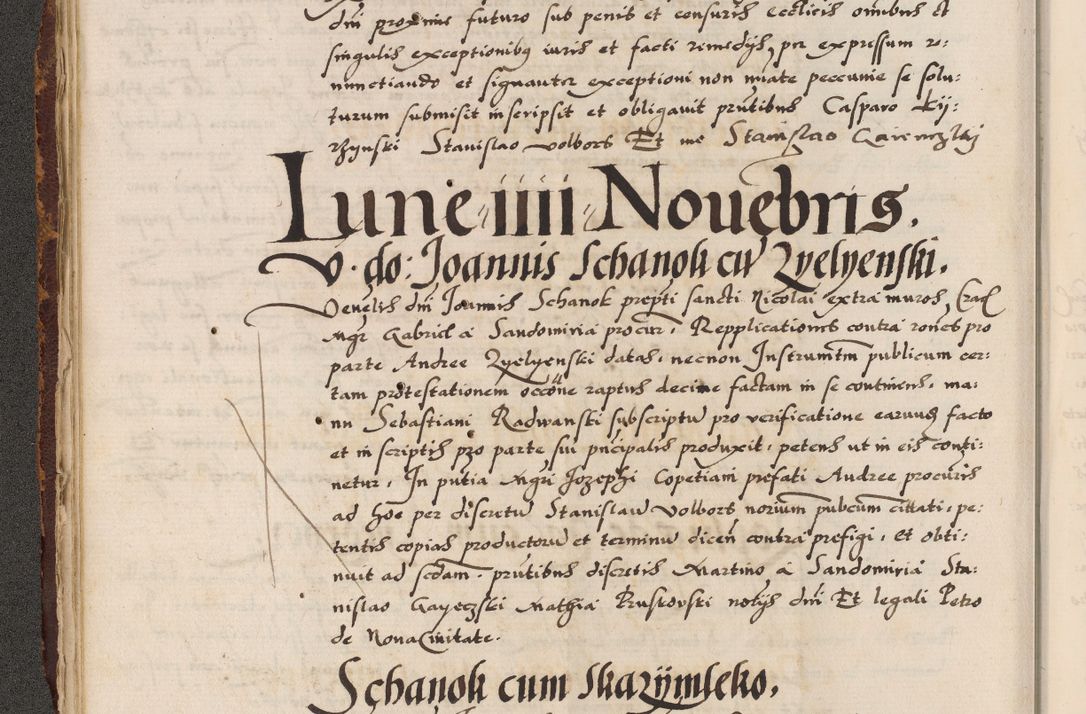 dni proxime futuro sub penis et censuris ecclicis omibus et
singulis exceptionibus iuris et facti remedijs, per expressum re:
nunctiando et signanter exceptioni non nuate peccunie se solu:
turum submisit inscripsit et obligavit prntibus Casparo
Stanislao volbors Et me Stanislao
Lune iiii Nouebris.
v. do: Joannis Schanok cu Zyelyenski.
Venelis dni Joannis Schanok prepti sancti Nicolai extra muros Crac
Mgr Gabriel a Sandomiria procur, Repplicationes contra rones pro
parte Andree Zyelyenski datas, necnon Instrumtm publicum cer:
tam protestationem occone raptus decime factam in se continens, ma:
nu Sebastiani Radwanski subscriptu pro verificatione earuus facto
et in scriptis pro parte sui pncipalis produxit, petens ut in eis conti:
netur, In pntia Mgri Jozephi Copetiani prefati Andree procuris
ad hoc per discretu Stanislau volbors norium pubcum cittati, pe:
tentis copias productoru et terminu dicen contra prefigi, Et obti:
nuit ad scdam, prntibus discretis Martino a Sandomiria Sta:
nislao Gayeczski Mathia Bruskovski notijs dni Et legali Petro
de Nova Civitate.
Schanok cum Skazijmleko.